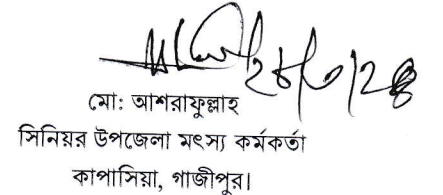 মো: আশরাফুল্লাহ
সিনিয়র উপজেলা মৎস্য কর্মকর্তা
কাপাসিয়া, গাজীপুর।